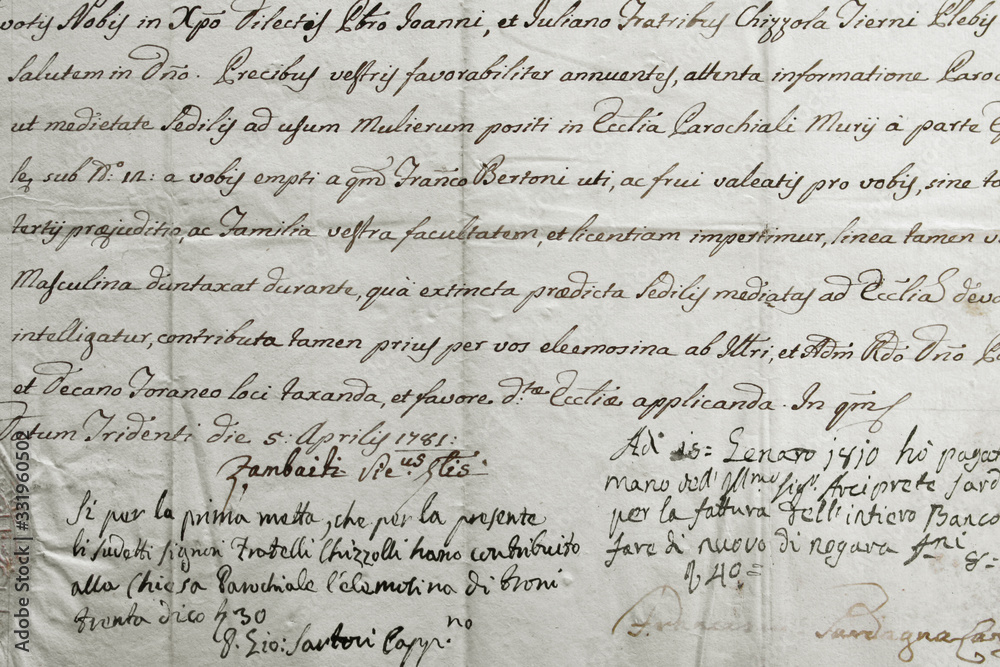 votis Nobis in Xpo Dilectis Pbro Joanni, et Juliano Fratribus Chizzola Tierni Plebis
Salutem in Dño. Precibus vestris favorabiliter annuentes, attenta informatione Paroc
ut medietate Sedilis ad usum Mulierum positi in Ecclia Parochiali Murij à parte
le, sub N:o 12: a vobis empti a qm Franco Bertoni uti, ac frui valeatis pro vobis, sine
tertij præjuditio, ac Familia vestra facultatem, et licentiam impertimur, linea tamen
Masculina duntaxat durante, quà extincta prædicta Sedilis medietas ad Eccliã devo
intelligatur, contributa tamen prius per vos eleemosina ab Illri, et Adm Rdo Dno
et Decano Foraneo loci taxanda, et favore d:tæ Eccliæ applicanda. In qm
Datum Tridenti die 5: Aprilis 1781:
Zambaiti Vic:us Glis
Si per la prima metta, che per la presente
li sudetti signori Fratelli Chizzolli hano contribuito
alla Chiesa Parochiale l'elemosina di troni
trenta dico 30
P. Gio: Sartori Capp.no
Adi 15= Genaro 1810 hò pagat
mano dell Illmo Sig.r Arciprete Sard
per la fattura dell'intiero Banco
fare di nuovo di nogara
40=
Francesc
Sardagna
Adobe Stock | #331960502